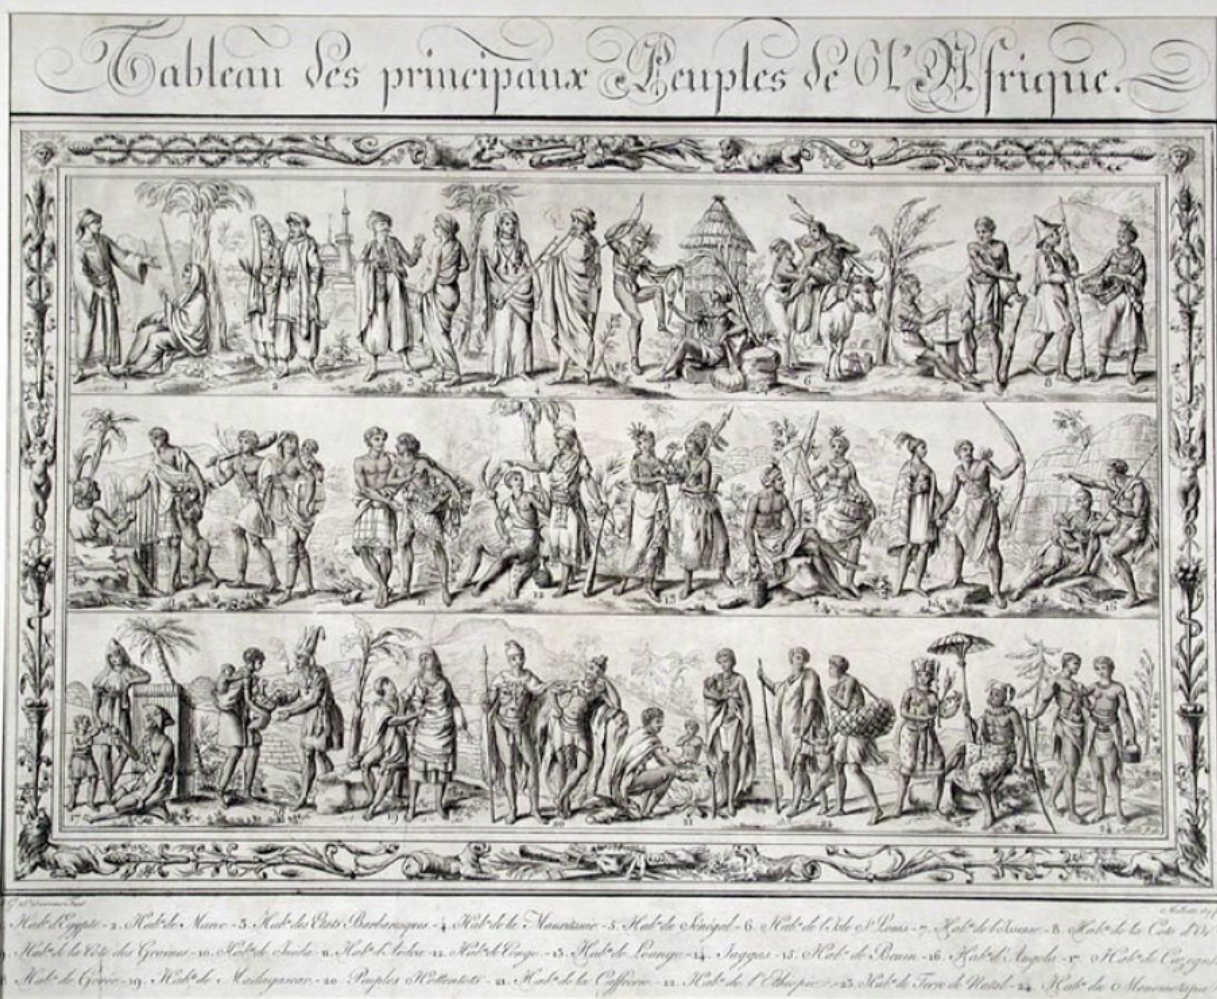 Tableau des principaux Peuples de L'Afrique.
1 2 3 5 6 8
11 12 13 16
17 19 20 21 22 23 24
Hab.ns d'Egypte - 2. Hab.ns de Maroc - 3. Hab.ns des Etats Barbaresques - 4. Hab.ns de la Mauritanie - 5. Hab.ns du Sénégal - 6. Hab.ns de l'Isle St Louis - 7. Hab.ns de - 8. Hab.ns de la Côte d'Or
Hab.ns de la Côte des Graines - 10. Hab.ns de Juida - 11. Hab.ns d'Ardra - 12. Hab.ns de Congo - 13. Hab.ns de Loango - 14. Jaggas - 15. Hab.ns de Benin - 16. Hab.ns d'Angola - 17. Hab.ns de
Hab.ns de Gorée - 19. Hab.ns de Madagascar - 20 Peuples Hottentots - 21. Hab.ns de la Caffrerie - 22. Hab.ns de l'Ethiopie - 23. Hab.ns de Terre de Natal - 24. Hab.ns du